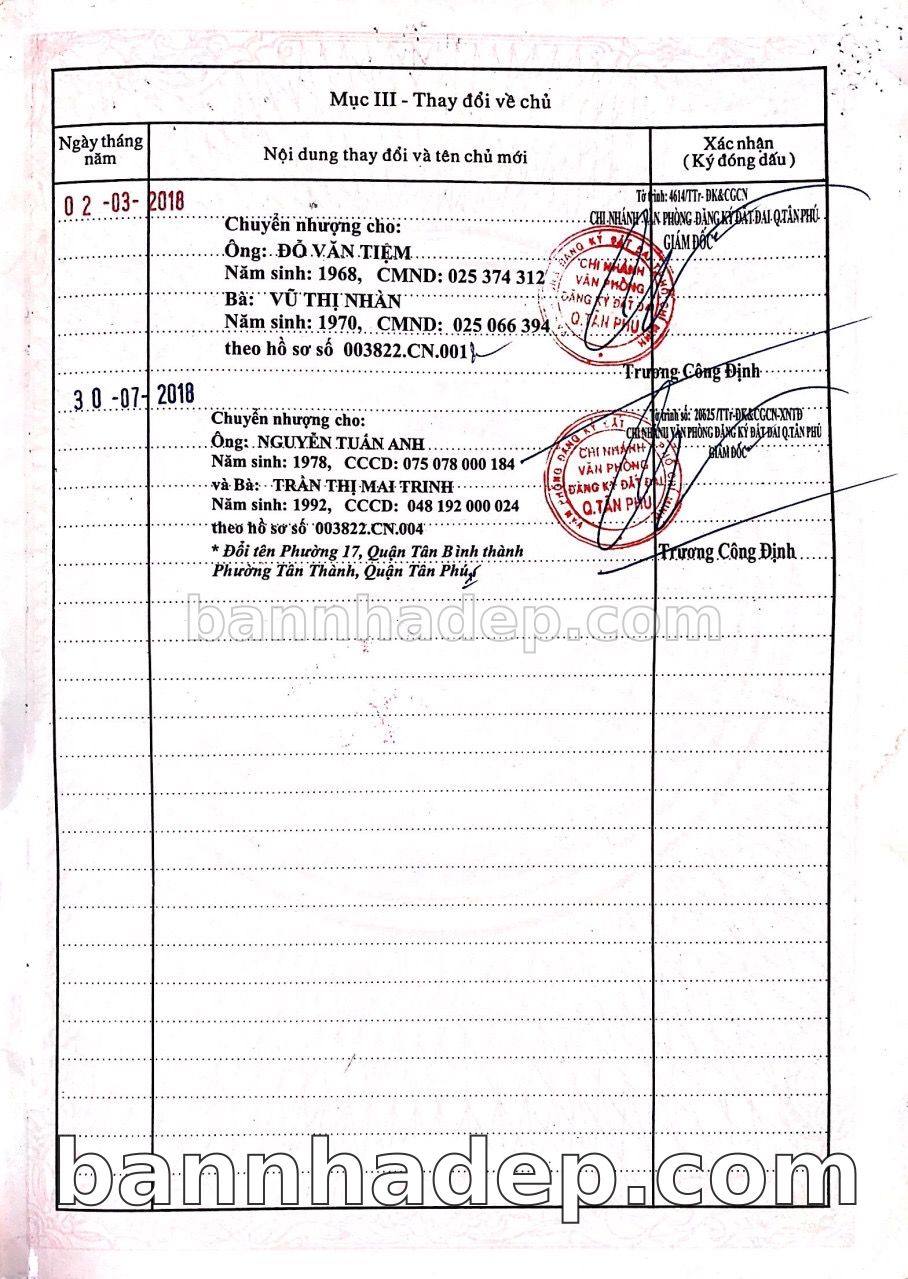 Mục III - Thay đổi về chủ
Ngày tháng năm
Nội dung thay đổi và tên chủ mới
Xác nhận
(Ký đóng dấu)
02 -03- 2018
Chuyển nhượng cho:
Ông: ĐỖ VĂN TIỆM
Năm sinh: 1968, CMND: 025 374 312
Bà: VŨ THỊ NHÀN
Năm sinh: 1970, CMND: 025 066 394
theo hồ sơ số 003822.CN.001
Tờ trình: 4614/TTr- ĐK&CGCN
CHI NHÁNH VĂN PHÒNG ĐĂNG KÝ ĐẤT ĐAI Q.TÂN PHÚ
GIÁM ĐỐC
CHI NHÁNH
VĂN PHÒNG
ĐĂNG KÝ ĐẤT ĐAI
Q.TÂN PHÚ
Trương Công Định
30 -07- 2018
Chuyển nhượng cho:
Ông: NGUYỄN TUẤN ANH
Năm sinh: 1978, CCCD: 075 078 000 184
và Bà: TRẦN THỊ MAI TRINH
Năm sinh: 1992, CCCD: 048 192 000 024
theo hồ sơ số 003822.CN.004
* Đổi tên Phường 17, Quận Tân Bình thành
Phường Tân Thành, Quận Tân Phú
Tờ trình số: 20625/TTr-ĐK&CGCN-XNTĐ
CHI NHÁNH VĂN PHÒNG ĐĂNG KÝ ĐẤT ĐAI Q.TÂN PHÚ
GIÁM ĐỐC
CHI NHÁNH
VĂN PHÒNG
ĐĂNG KÝ ĐẤT ĐAI
Q.TÂN PHÚ
Trương Công Định
bannhadep.com
bannhadep.com